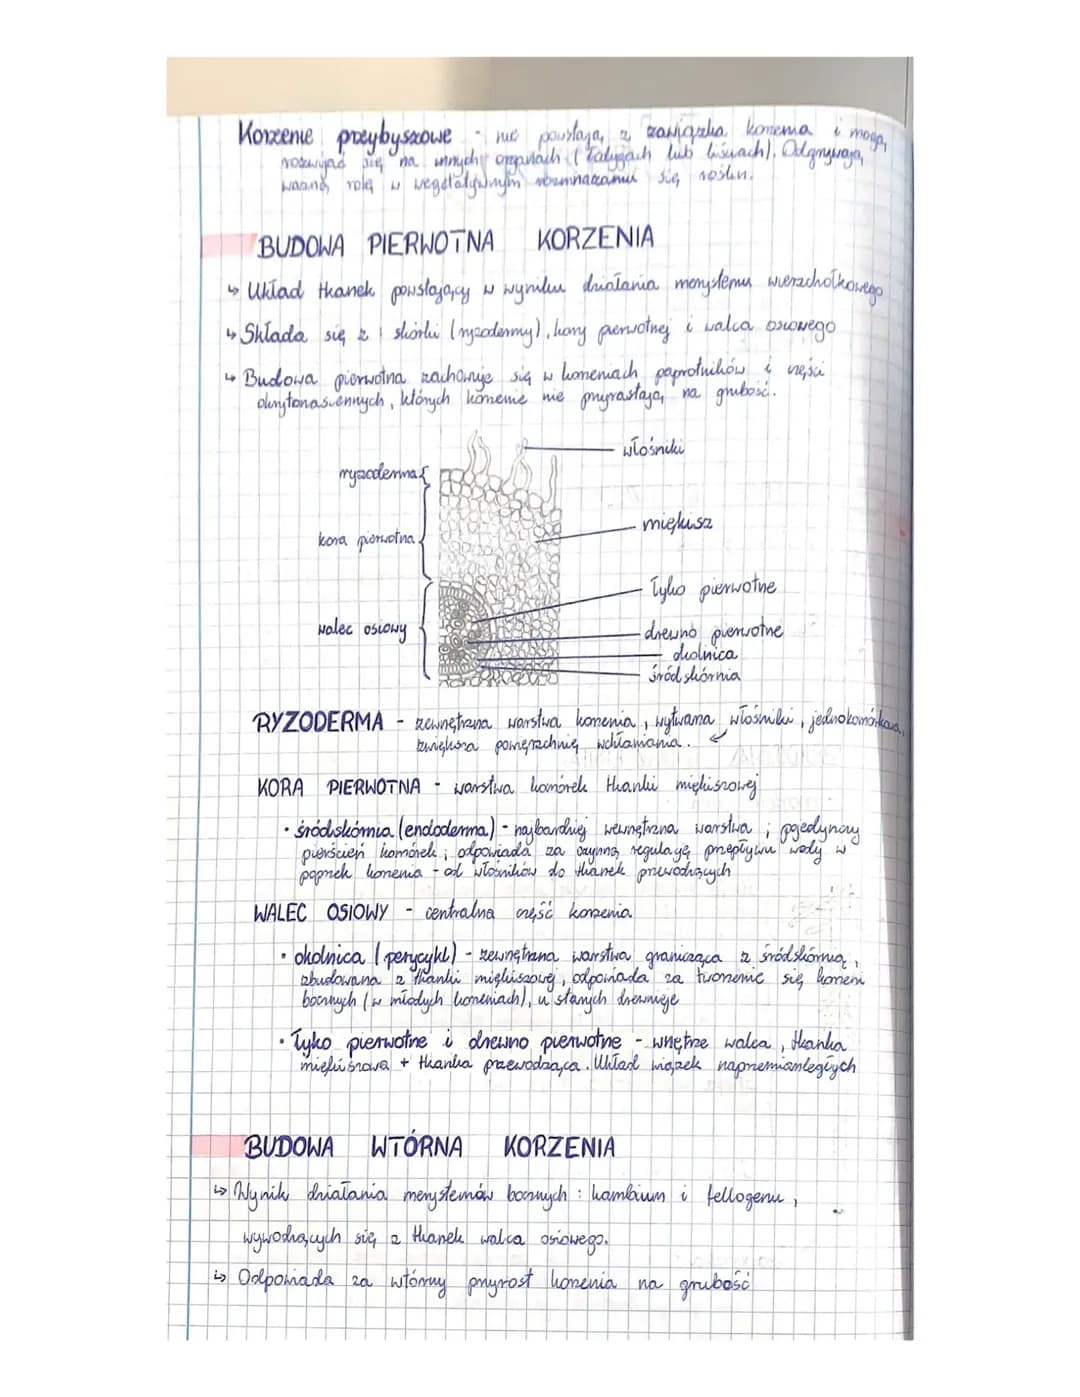 Korzenie przybyszowe - nie powstają z zawiązka korzenia i mogą
rozwijać się na innych organach (łodygach lub liściach). Odgrywają
ważną rolę w wegetatywnym rozmnażaniu się roślin.
BUDOWA PIERWOTNA KORZENIA
↳ Układ tkanek powstający w wyniku działania merystemu wierzchołkowego
↳ Składa się z skórki (ryzodermy), kory pierwotnej i walca osiowego
↳ Budowa pierwotna zachowuje się w korzeniach paprotników i części
okrytonasiennych, których korzenie nie przyrastają na grubość.
włośniki
ryzoderma {
miękisz
kora pierwotna
łyko pierwotne
walec osiowy
drewno pierwotne
okolnica
śródskórnia
RYZODERMA - zewnętrzna warstwa korzenia, wytwarza włośniki, jednokomórkowa,
zwiększa powierzchnię wchłaniania.
KORA PIERWOTNA - warstwa komórek tkanki miękiszowej
• śródskórnia (endoderma) - najbardziej wewnętrzna warstwa; pojedynczy
pierścień komórek; odpowiada za czynną regulację przepływu wody w
poprzek korzenia - od włośników do tkanek przewodzących
WALEC OSIOWY - centralna część korzenia
• okolnica (perycykl) - zewnętrzna warstwa granicząca z śródskórnią,
zbudowana z tkanki miękiszowej, odpowiada za tworzenie się korzeni
bocznych (w młodych korzeniach), u starych drewnieje
• Łyko pierwotne i drewno pierwotne - wnętrze walca, tkanka
miękiszowa + tkanka przewodząca. Układ wiązek naprzemianległych
BUDOWA WTÓRNA KORZENIA
↳ Wynik działania merystemów bocznych: kambium i fellogenu,
wywodzących się z tkanek walca osiowego.
↳ Odpowiada za wtórny przyrost korzenia na grubość